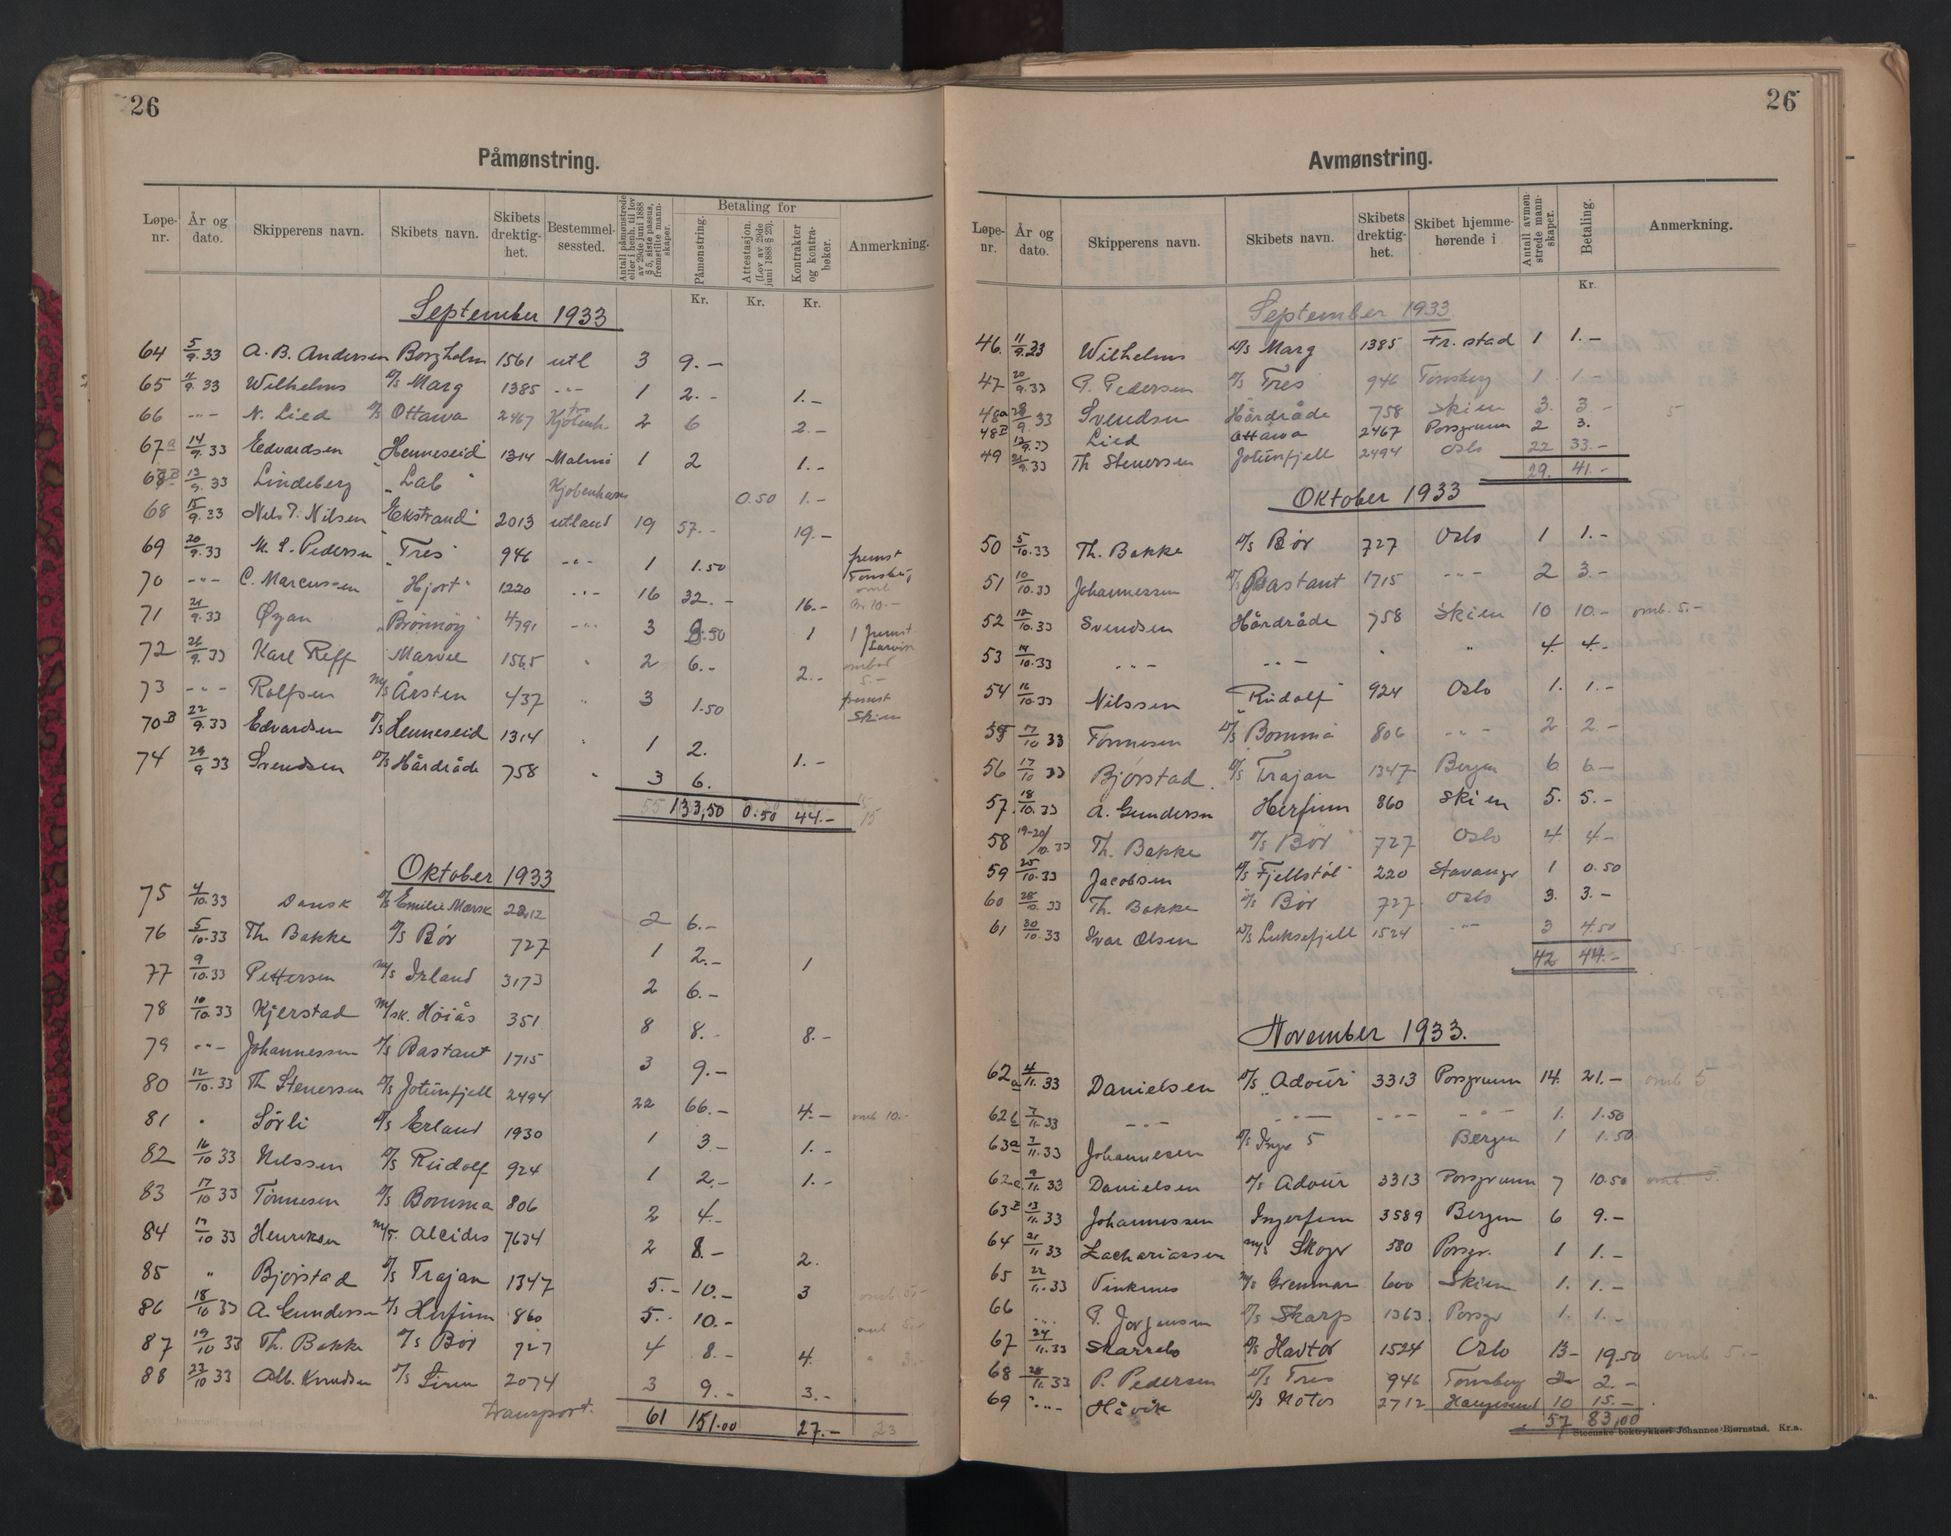 26
Påmønstring.
Løpe-nr. År og dato. Skipperens navn. Skibets navn. Skibets drektig-het. Bestemmel-sessted. Antall påmønstrede eller i henh. til lov av 29de juni 1888 § 5, siste passus, fremstilte mann-skaper. Betaling for Påmønstring. Attestasjon. (Lov av 29de juni 1888 § 23). Kontrakter og kontra-bøker. Anmerkning.
Kr. Kr. Kr.
September 1933
64 5/9.33 A. B. Andersen Borgholm 1561 utl 3 9.–
65 11/9.33 Wilhelms D/s Marg 1385 -"- 1 2.– 1.–
66 -"- N. Lied D/s Ottawa 2467 Kjøbenh. 2 6 2.–
67a 14/9.33 Edvardsen Henneseid 1314 Malmø 1 2 1.–
68B 13/9.33 Lindeberg "Lab" Kjøbenhavn 0.50 1.–
68 15/9.33 Nils T. Nilsen Ekstrand 2013 utland 19 57.– 19.–
69 20/9.33 M. S. Pedersen "Tres" 946 -"- 1 1.50 fremst Tønsberg
70 -"- C. Marcussen Hjort 1220 -"- 16 32.– 16.– omb Kr. 10.–
71 21/9.33 Øyan "Brønnøy" 4791 -"- 3 8.50 1 1 fremst Larvik
72 26/9.33 Karl Reff Marvel 1565 " 2 6.– 2.– ombud 5.–
73 -"- Rolfsen M/s Årsten 437 " 3 1.50 fremst Skien
70B 22/9.33 Edvardsen D/s Henneseid 1314 " 1 2. 1.–
74 29/9 33 Svendsen D/s Hårdråde 758 " 3 6.
55 133,50 0.50 44.– 15
Oktober 1933
75 4/10.33 Dansk D/s Emilie Marsk 2212 2 6.–
76 5/10.33 Th. Bakke D/s Bør 727 1 2.– 1
77 9/10.33 Pettersen M/s Irland 3173 2 6.–
78 10/10.33 Kjerstad M/sk. Høiås 351 8 8.– 8.–
79 -"- Johannessen D/s Bastant 1715 3 9.–
80 12/10.33 Th Stenersen D/s Jotunfjell 2494 22 66.– 4.– omb 10.–
81 " Sørli D/s Erland 1930 1 3.– 1.–
82 16/10 33 Nilssen D/s Rudolf 924 1 2.– 1.–
83 17/10 33 Tønnesen D/s Bomma 806 2 4.–
84 17/10 33 Henriksen M/T. Alcides 7634 2 8.– 2.
85 " Bjørstad D/s Trajan 1347 5.– 10.– 3 omb. 5.–
86 18/10 33 A. Gundersen D/s Herfinn 860 5. 10.– omb 5.–
87 19/10 33 Th. Bakke D/s Bør 727 4 8.– 4. " 3.–
88 23/10 33 Alb. Knudsen D/s Siren 2074 3 9.– 3.–
Transport. 61 151.00 27.– 23
26
Avmønstring.
Løpe-nr. År og dato. Skipperens navn. Skibets navn. Skibets drektig-het. Skibet hjemme-hørende i Antall avmøn-strede mann-skaper. Betaling. Anmerkning.
Kr.
September 1933
46. 11/9.33 Wilhelms D/s Marg 1385 Fr.stad 1 1.–
47 20/9.33 P. Pedersen D/s Tres 946 Tønsberg 1 1.–
48a 28/9 33 Svendsen Hårdråde 758 Skien 3. 3.– 5
48B 12/9.33 Lied Ottawa 2467 Porsgrunn 2 3.
49 21/9.33 Th Stenersen Jotunfjell 2494 Oslo 22 33.–
29. 41.–
Oktober 1933
50 5/10.33 Th. Bakke D/s Bør 727 Oslo 1 1.–
51 10/10.33 Johannessen D/s Bastant 1715 -"- 2 3.–
52 12/10.33 Svendsen Hårdråde 758 Skien 10 10.– omb. 5.–
53 14/10.33 -"- -"- " " 4. 4.–
54 16/10.33 Nilssen "Rudolf" 924 Oslo 1. 1.–
55 17/10 33 Tønnesen D/s Bomma 806 -"- 2 2.–
56 17/10 33 Bjørstad. D/s Trajan 1347 Bergen 6 6.–
57. 18/10.33 A. Gundersen Herfinn 860 Skien 5. 5.–
58 19-20/10.33 Th. Bakke D/s Bør 727 Oslo 4 4.–
59 25/10.33 Jacobsen D/s Fjellstøl 220 Stavanger 1 0.50
60 28/10 33 Th. Bakke D/s Bør 727. Oslo 3. 3.–
61 30/10.33 Ivar Olsen D/s Luksefjell 1524 -"- 3 4.50
42 44.–
November 1933.
62a 4/11.33 Danielsen D/s "Advür" 3313 Porsgrunn 14. 21.– omb 5
62b 7/11.33 -"- -"- -"- -"- 1. 1.50
63a 7/11.33 Johannesen D/s Inge 5 Bergen 1 1.50
62a 9/11.33 Danielsen D/s Advür 3313 Porsgrunn 7 10.50 omb 5.
63B 13/11.33 Johannessen Ingerfem 3589 Bergen 6 9.–
64 21/11 33 Zachariassen M/s Skoger 580 Porsgr. 1 1.–
65 22/11.33 Vinknes M/s Grenmar 600 Skien 1. 1.–
66 -"- P. Jørgensen D/s Skarp 1363 Porsgr 1. 1.–
67 24/11.33 Skarrebo D/s Havtor 1524 Oslo 13– 19.50 omb 5.–
68 28/11.33 P. Pedersen D/s Tres 946 Tønsberg 2.–
69 -"- Håvik D/s Notos 2712 Haugesund 10 15.–
57 83,00
Steenske boktrykkeri Johannes Bjørnstad. Kr.a.